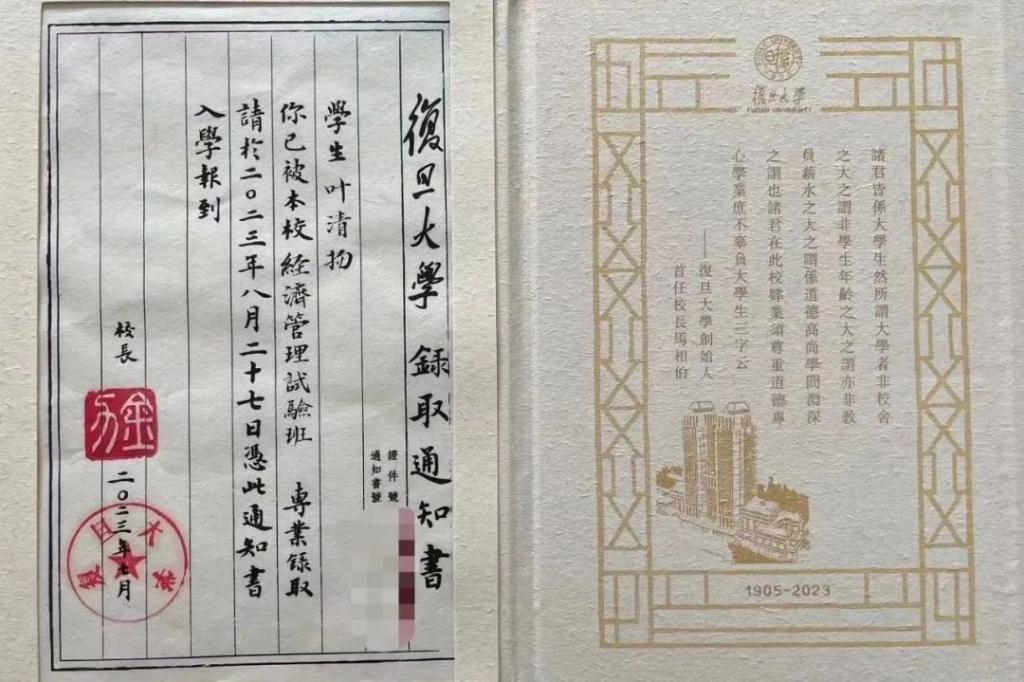 復旦大學 録取通知書
證件號
通知書號
學生 叶清扬
你已被本校經濟管理試驗班 專業録取
請於二〇二三年八月二十七日憑此通知書
入學報到
校長
金力
二〇二三年七月
復旦大學
復旦大學
FUDAN UNIVERSITY
諸君皆係大學生然所謂大學者非校舍
之大之謂非學生年齡之大之謂亦非教
員薪水之大之謂係道德高尚學問淵深
之謂也諸君在此校肄業須尊重道德專
心學業庶不辜負大學生三字云
——復旦大學創始人
首任校長馬相伯
1905-2023